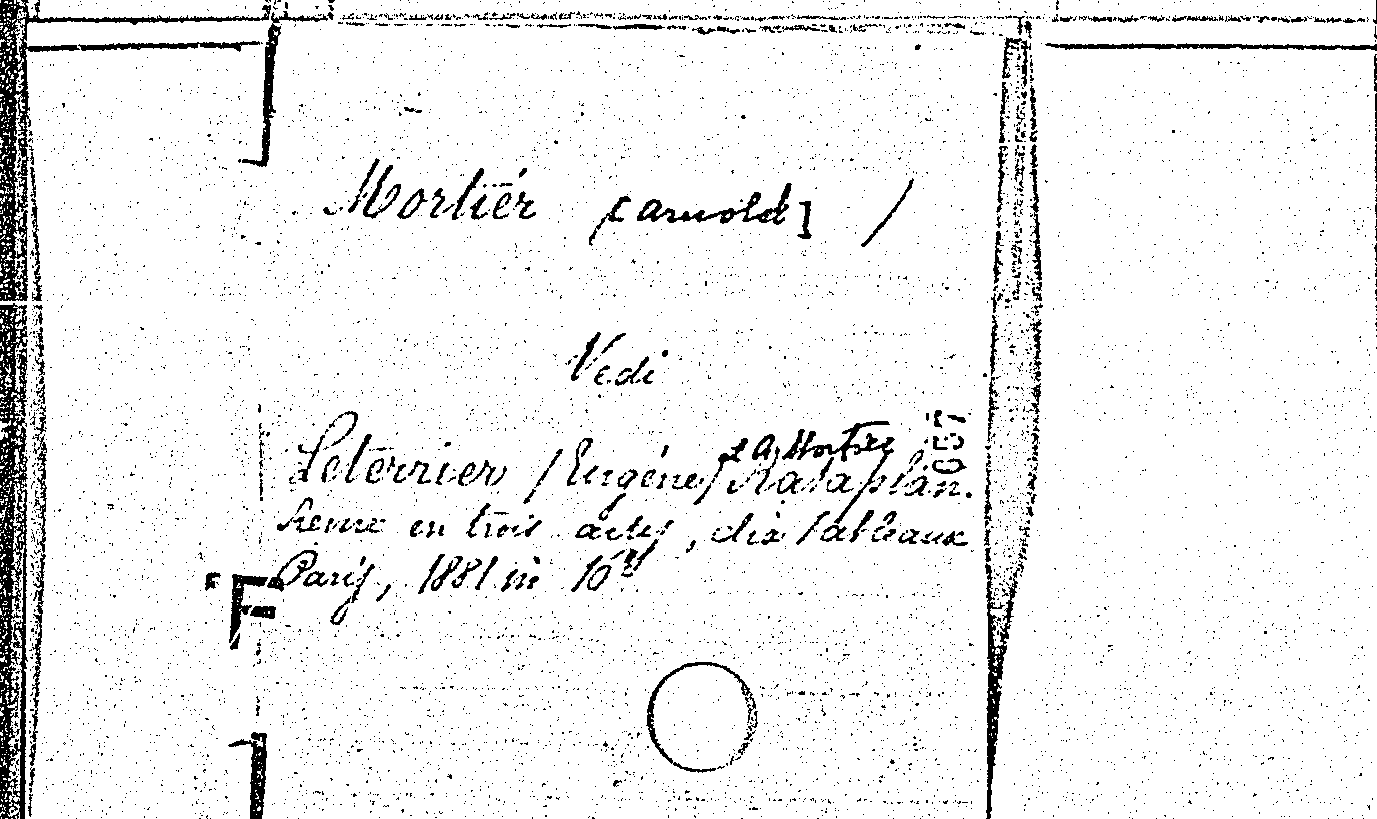 Mortier [Arnold] /
Vedi
Leterrier (Eugène) et A. Mortier Rataplan.
Revue en trois actes, dix tableaux
Paris, 1881 in 16º
057